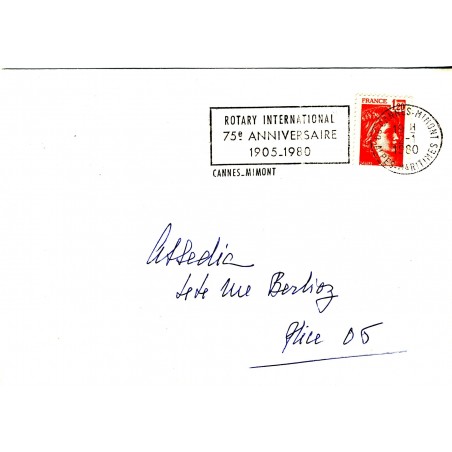 ROTARY INTERNATIONAL
75e ANNIVERSAIRE
1905_1980
CANNES_MIMONT
FRANCE
CANNES-MIMONT
80
ALPES-MARITIMES
Assedia
rue Berlioz
Nice 05